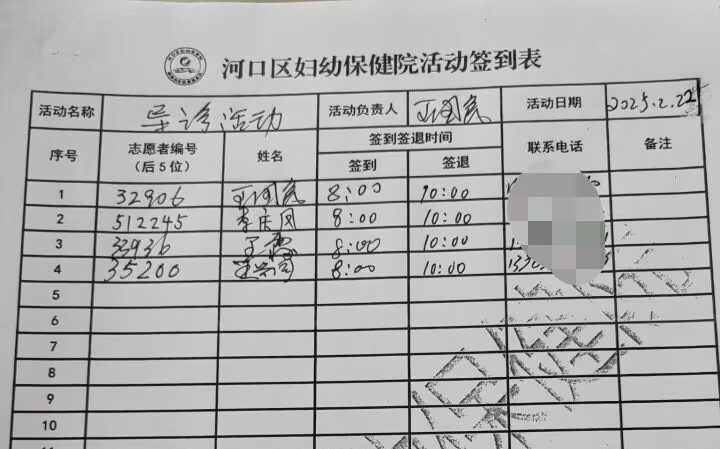 河口区妇幼保健院活动签到表
活动名称 导诊活动 活动负责人 活动日期 2025.2.22
序号 志愿者编号（后5位） 姓名 签到签退时间 联系电话 备注
签到 签退
1 32906 8:00 10:00
2 512245 李庆凤 8:00 10:00
3 33936 8:00 10:00
4 35200 8:00 10:00
5
6
7
8
9
10